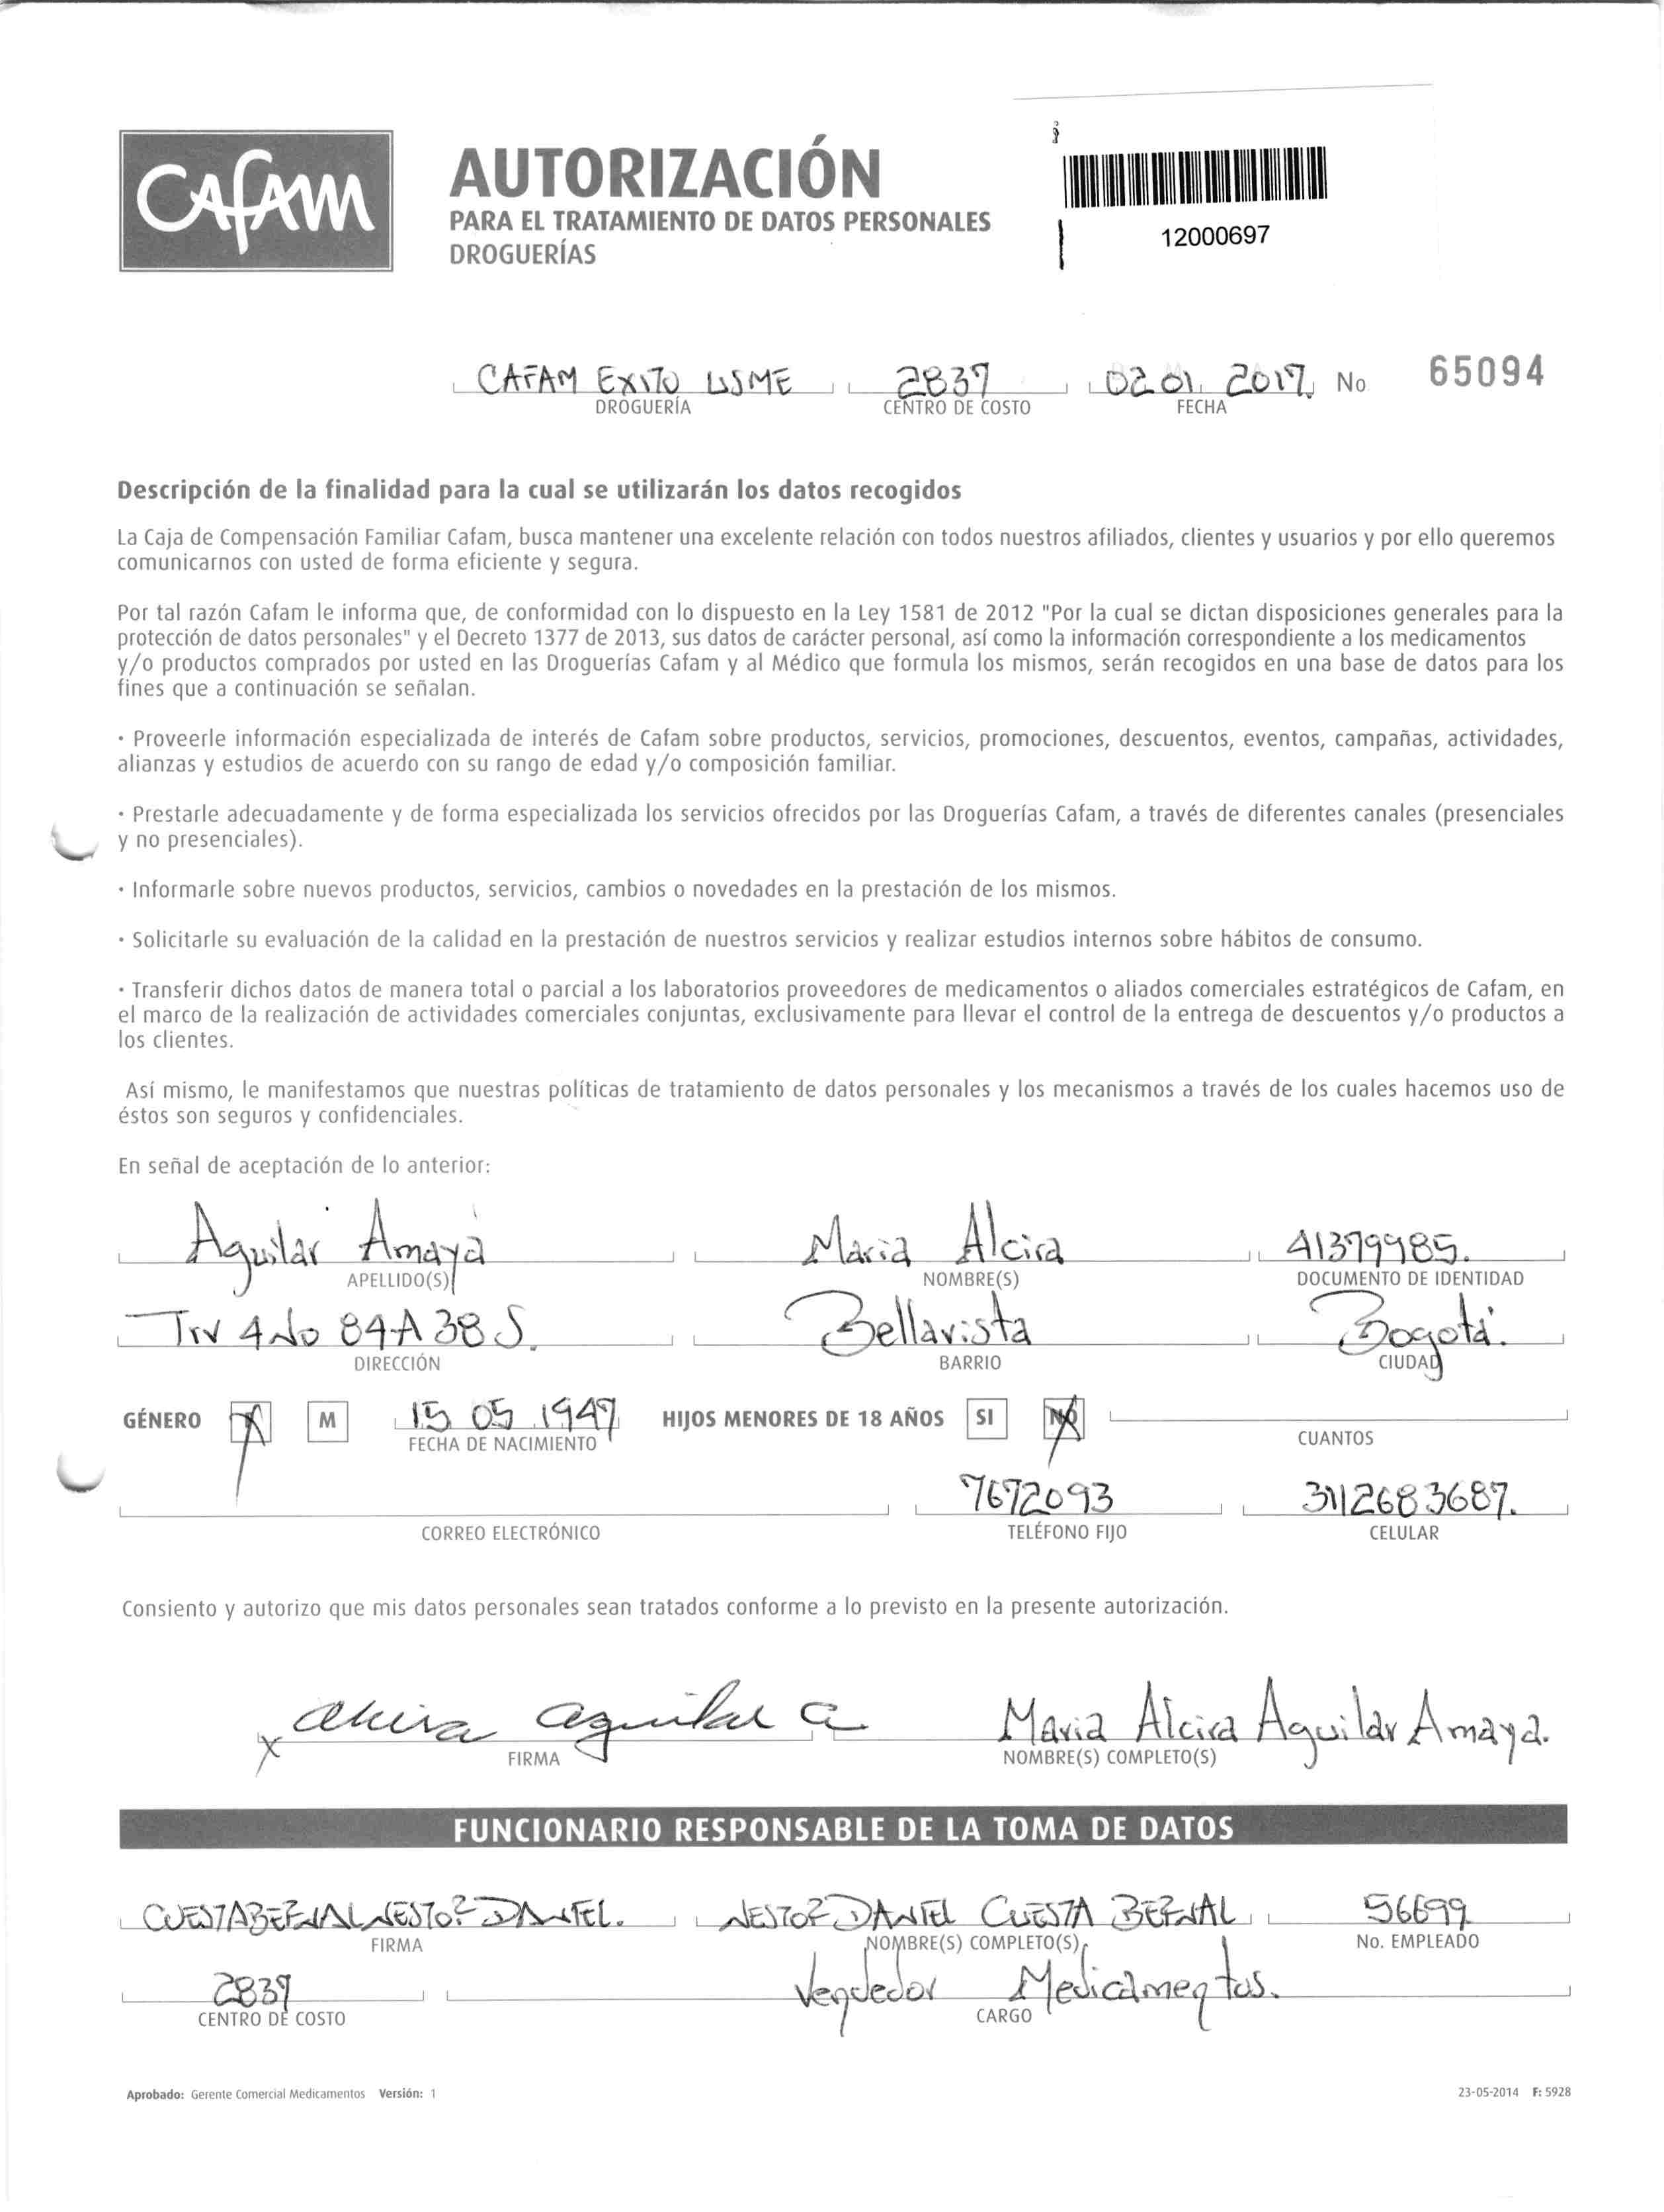 CAFAM
AUTORIZACIÓN
PARA EL TRATAMIENTO DE DATOS PERSONALES
DROGUERÍAS
12000697
CAFAM EXITO USME 2837 02 01 2017 No 65094
DROGUERÍA CENTRO DE COSTO FECHA
Descripción de la finalidad para la cual se utilizarán los datos recogidos
La Caja de Compensación Familiar Cafam, busca mantener una excelente relación con todos nuestros afiliados, clientes y usuarios y por ello queremos
comunicarnos con usted de forma eficiente y segura.
Por tal razón Cafam le informa que, de conformidad con lo dispuesto en la Ley 1581 de 2012 "Por la cual se dictan disposiciones generales para la
protección de datos personales" y el Decreto 1377 de 2013, sus datos de carácter personal, así como la información correspondiente a los medicamentos
y/o productos comprados por usted en las Droguerías Cafam y al Médico que formula los mismos, serán recogidos en una base de datos para los
fines que a continuación se señalan.
· Proveerle información especializada de interés de Cafam sobre productos, servicios, promociones, descuentos, eventos, campañas, actividades,
alianzas y estudios de acuerdo con su rango de edad y/o composición familiar.
· Prestarle adecuadamente y de forma especializada los servicios ofrecidos por las Droguerías Cafam, a través de diferentes canales (presenciales
y no presenciales).
· Informarle sobre nuevos productos, servicios, cambios o novedades en la prestación de los mismos.
· Solicitarle su evaluación de la calidad en la prestación de nuestros servicios y realizar estudios internos sobre hábitos de consumo.
· Transferir dichos datos de manera total o parcial a los laboratorios proveedores de medicamentos o aliados comerciales estratégicos de Cafam, en
el marco de la realización de actividades comerciales conjuntas, exclusivamente para llevar el control de la entrega de descuentos y/o productos a
los clientes.
Así mismo, le manifestamos que nuestras políticas de tratamiento de datos personales y los mecanismos a través de los cuales hacemos uso de
éstos son seguros y confidenciales.
En señal de aceptación de lo anterior:
Aguilar Amaya Maria Alcira 41379985.
APELLIDO(S) NOMBRE(S) DOCUMENTO DE IDENTIDAD
Trv 4 No 84A 38 S. Bellavista Bogotá.
DIRECCIÓN BARRIO CIUDAD
GÉNERO M 15 05 1947 HIJOS MENORES DE 18 AÑOS SI NO
FECHA DE NACIMIENTO CUANTOS
7672093 3112683687.
CORREO ELECTRÓNICO TELÉFONO FIJO CELULAR
Consiento y autorizo que mis datos personales sean tratados conforme a lo previsto en la presente autorización.
x Alcira Aguilar A Maria Alcira Aguilar Amaya.
FIRMA NOMBRE(S) COMPLETO(S)
FUNCIONARIO RESPONSABLE DE LA TOMA DE DATOS
CUESTA BERNAL NESTOR DANIEL. NESTOR DANIEL CUESTA BERNAL 56699
FIRMA NOMBRE(S) COMPLETO(S) No. EMPLEADO
2837 Vendedor Medicamentos.
CENTRO DE COSTO CARGO
Aprobado: Gerente Comercial Medicamentos Versión: 1 23-05-2014 F: 5928